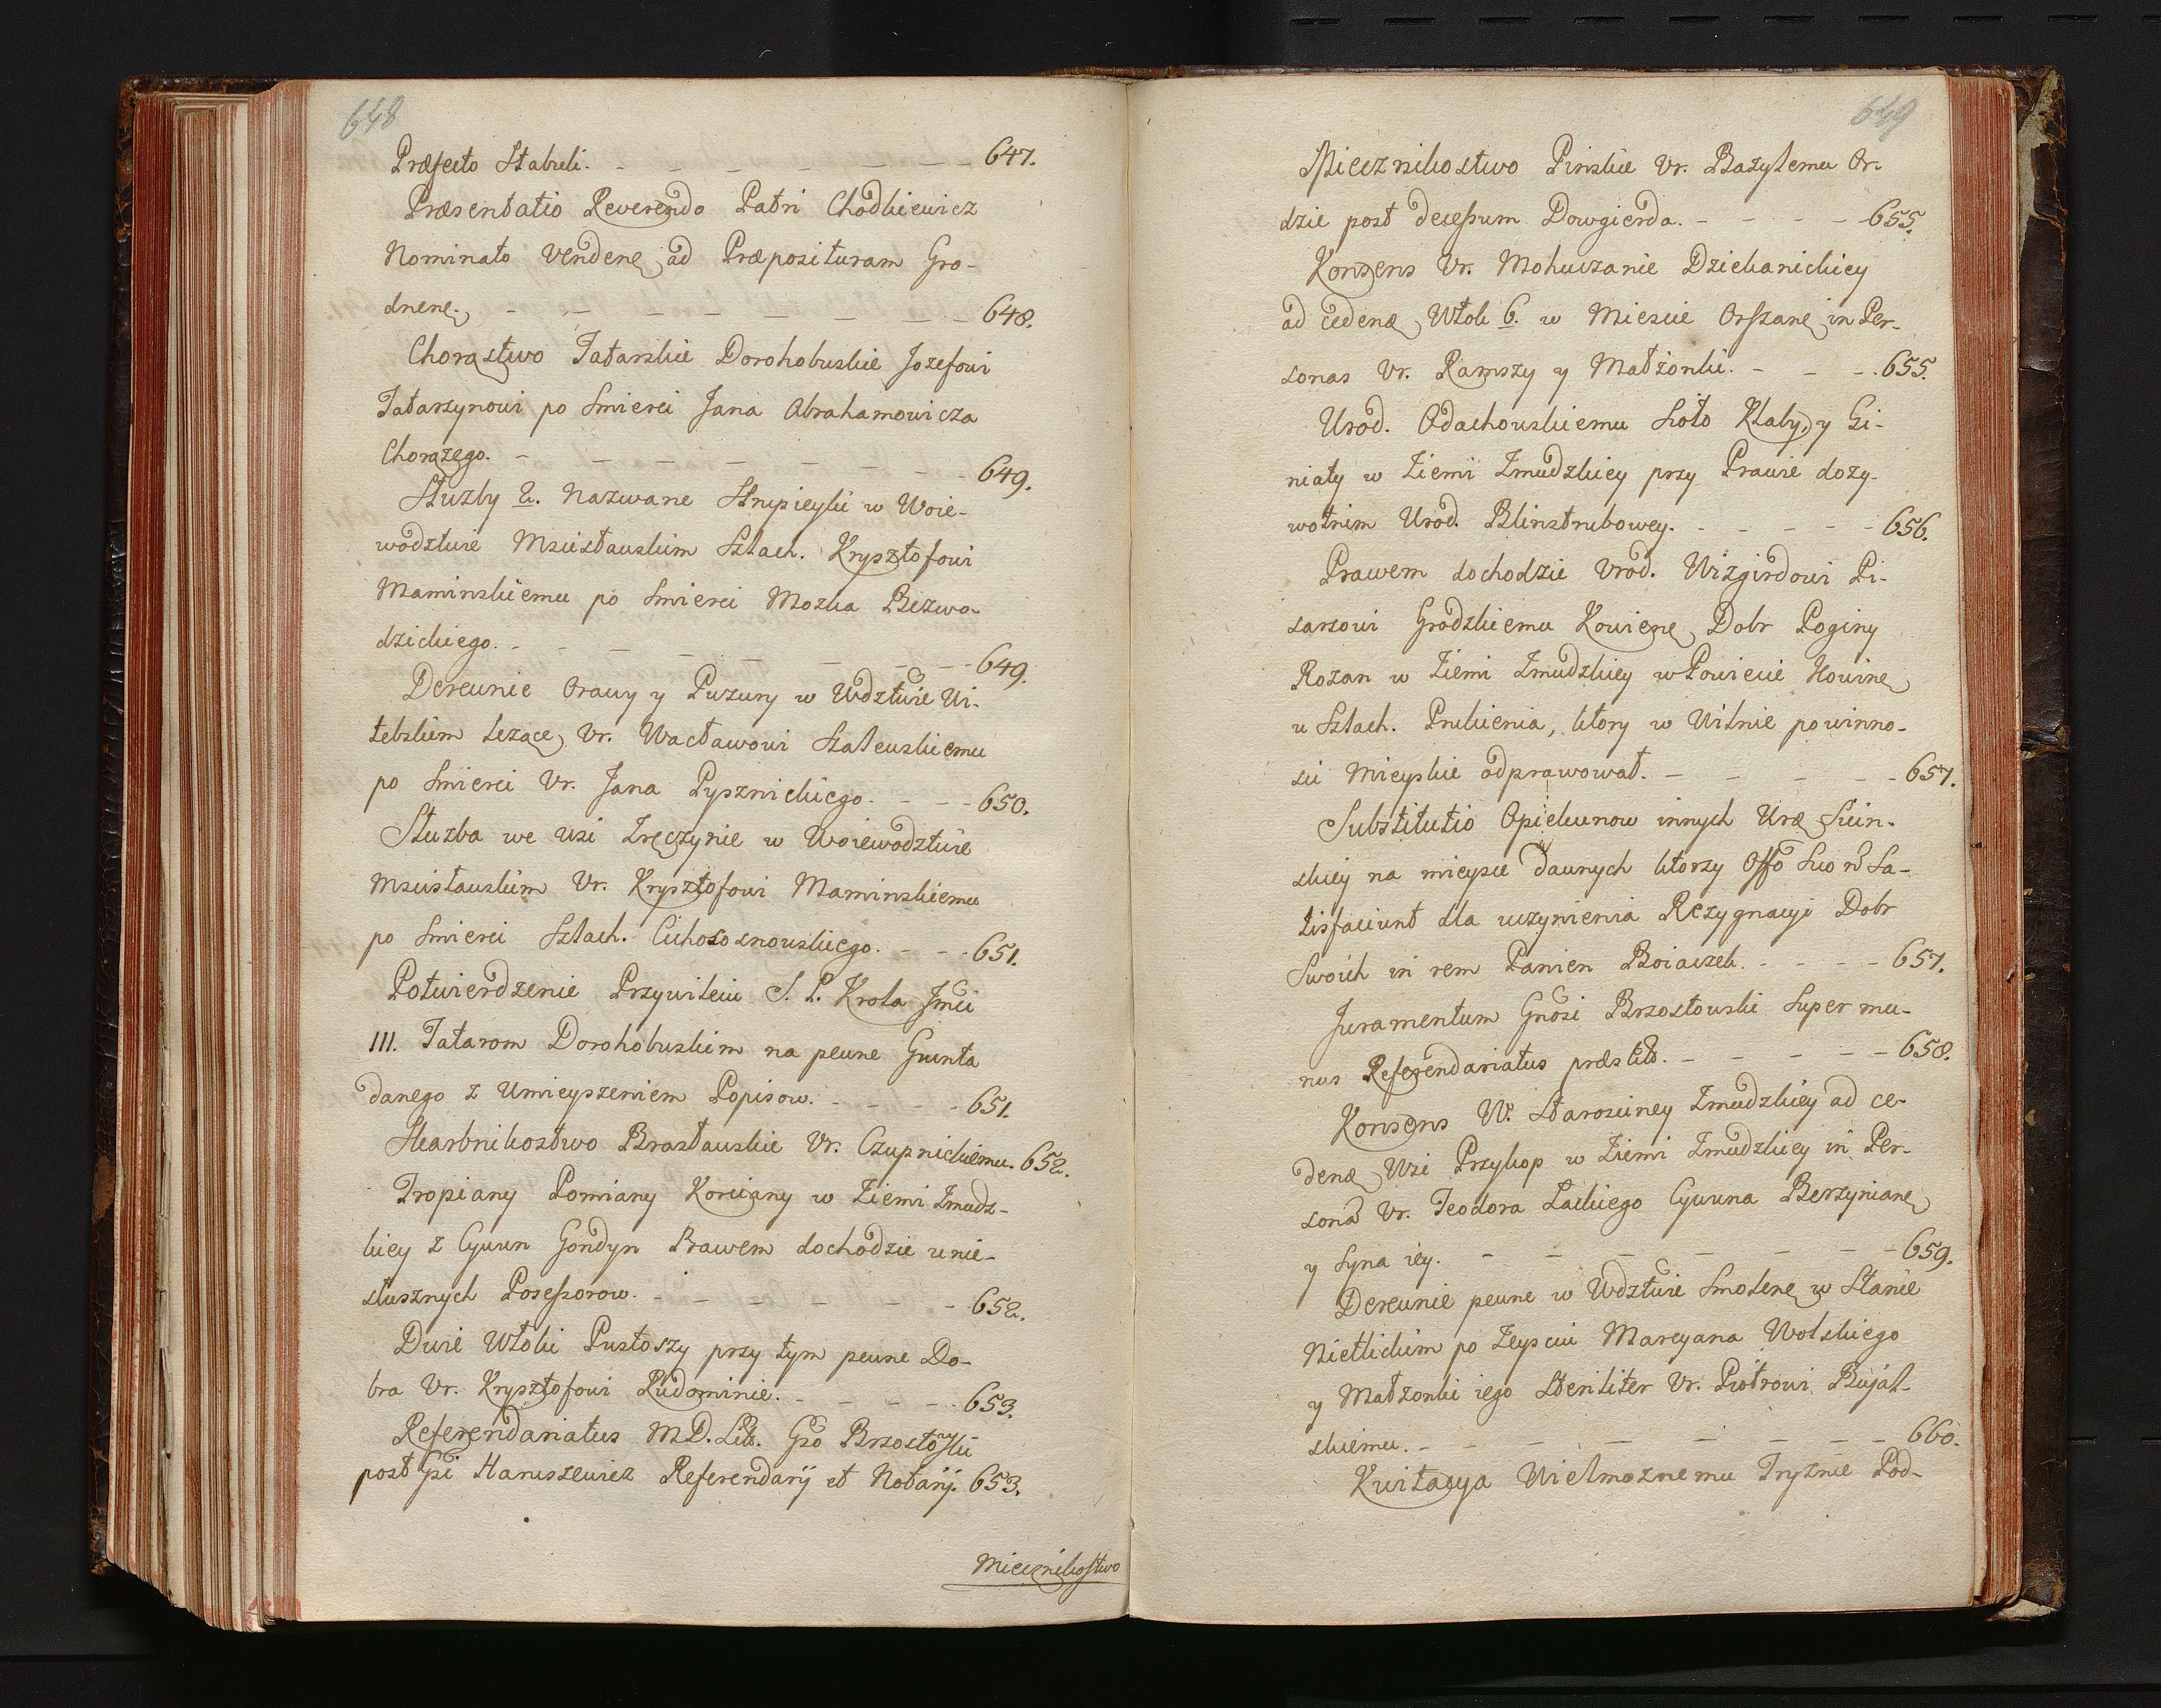 648
Præfecto Stabuli. - - - - - - - 647.
Præsentatio Reverendo Patri Chodkiewicz
Nominato Vendenę ad Præposituram Gro-
dnenę. - - - - - - - - 648.
Chorąstwo Tatarskie Dorohobuskie Jozefowi
Tatarzynowi po Smierci Jana Abrahamowicza
Chorążego. - - - - - - - - 649.
Służby 2. Nazwane Strupieyki w Woie-
wodztwie Mscisławskim Szlach. Krysztofowi
Maminskiemu po Smierci Mozka Bezwo-
dzickiego. - - - - - - - - 649.
Derewnie Orawy y Puzury w Wdztwie Wi-
tebskim leżące Vr. Wacławowi Szalewskiemu
po Smierci Vr. Jana Pysznickiego. - - - 650.
Służba we wsi Zręczynie w Woiewodztwie
Mscisławskim Vr. Krysztofowi Maminskiemu
po Smierci Szlach. Cichososnowskiego. - - - 651.
Potwierdzenie Przywileiu S. P. Krola Jmci
III. Tatarom Dorohobuskim na pewne Grunta
danego z Umieyszeniem Popisow. - - - - - 651.
Skarbnikostwo Brasławskie Vr. Czupnickiemu. 652.
Tropiany Pomiany Korciany w Ziemi Zmudz-
kiey z Cywun Gondyn Prawem dochodzic u nie-
słusznych Posessorow. - - - - - - - 652.
Dwie Włoki Pustoszy przy tym pewne Do-
bra Vr. Krysztofowi Rudominie. - - - - - 653.
Referendariatus M.D. Litt. Gso Brzostowski
post Gsi Hanuszewicz Referendarij et Notarij. 653.
Miecznikostwo
649
Miecznikostwo Pinskie Vr. Bazylemu Or-
dzie post decessum Dowgierda. - - - - 655.
Konsens Vr. Mohuczanie Dziekanickiey
ad cedenæ Włok 6. w Miescie Orszanę in Per-
sonas Vr. Ramszy y Małżonki. - - - - 655.
Urod. Odachowskiemu Sioło Kłaby, y Gi-
niały w Ziemi Zmudzkiey przy Prawie dozy-
wotnim Urod. Blinstrubowey. - - - - - 656.
Prawem dochodzic Urod. Wizgirdowi Pi-
sarzowi Grodzkiemu Kowienę Dobr Poginy
Rozan w Ziemi Zmudzkiey w Powiecie Kowinę
u Szlach. Prukienia, ktory w Wilnie powinno-
sci Mieyskie odprawował. - - - - - 657.
Substitutio Opiekunow innych Uræ Siein-
skiey na mieysce dawnych ktorzy Offo Suo ñ Sa-
tisfaciunt dla uczynienia Rezygnacyi Dobr
Swoich in rem Panien Boiaczek. - - - - 657.
Juramentum Gnosi Brzostowski Super mu-
nus Referendariatus præstit. - - - - - 658.
Konsens W. Starosciney Zmudzkiey ad ce-
denæ Wsi Przykop w Ziemi Zmudzkiey in Per-
sona Vr. Teodora Lackiego Cywuna Berzynianę
y Syna iey. - - - - - - - 659.
Derewnie pewne w Wdztwie Smolenę w Stanie
Nietlickim po Zeysciu Marcyana Wolskiego
y Małżonki iego Steriliter Vr. Piotrowi Bujal-
skiemu. - - - - - - - - 660.
Kwitacya Wielmoznemu Tryznie Pod-